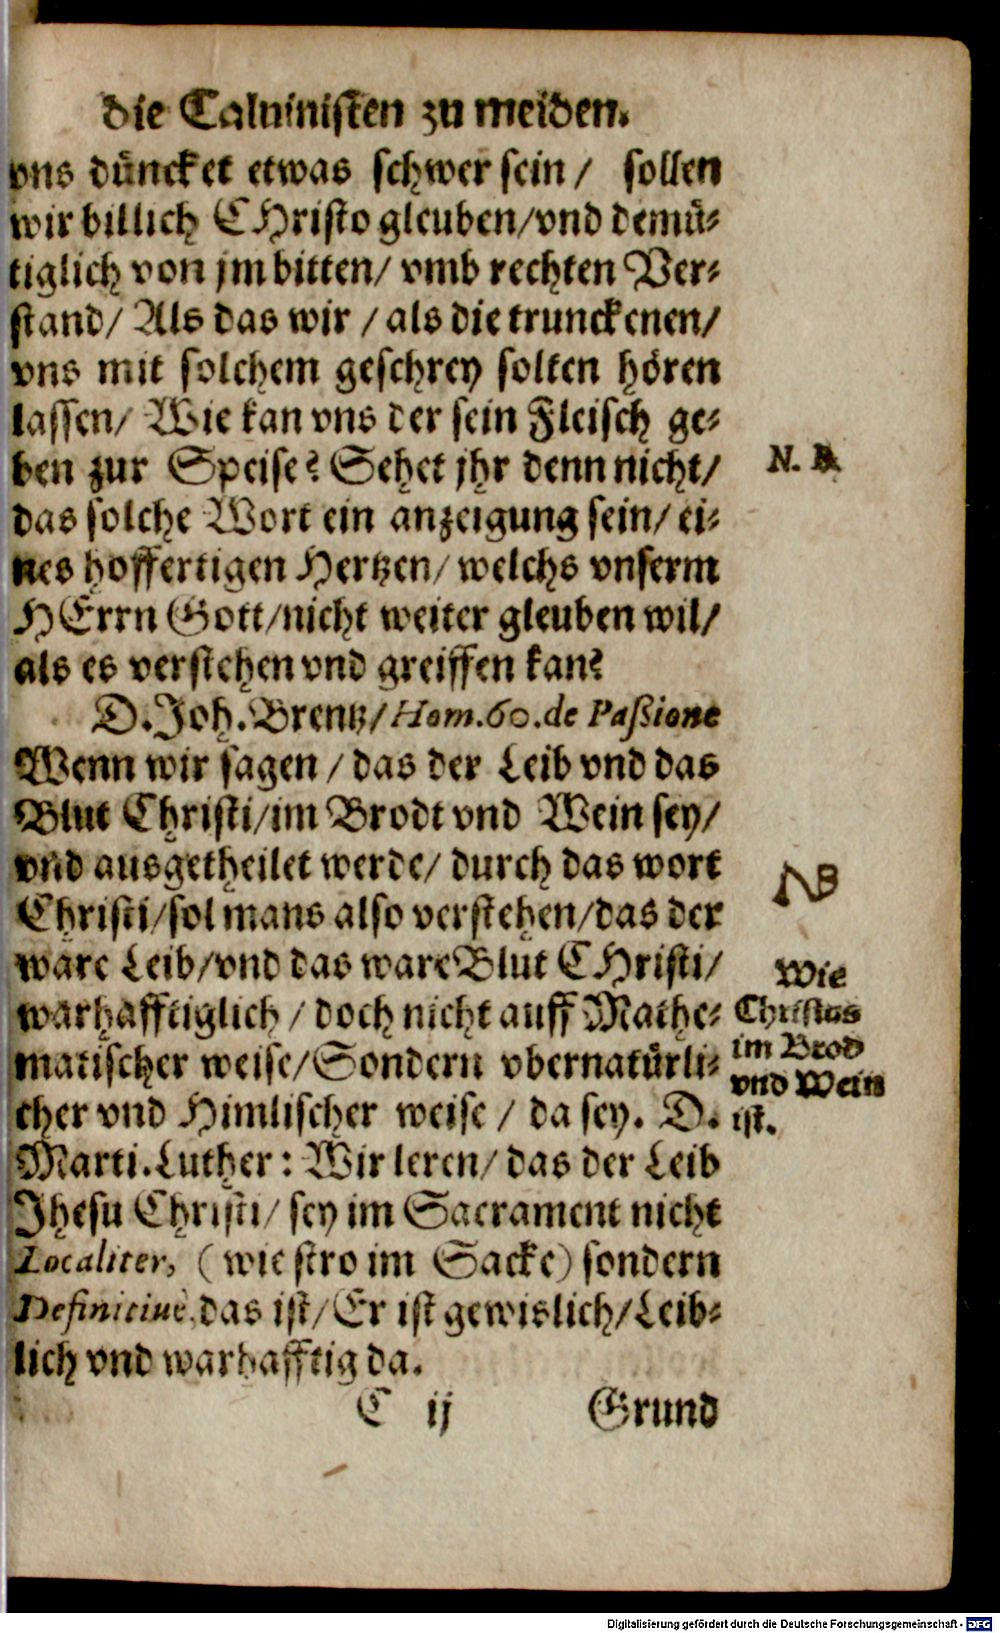 die Caluinisten zu meiden.
vns düncket etwas schwer sein / sollen
wir billich CHristo gleuben/vnd demü-
tiglich von jm bitten/ vmb rechten Ver-
stand/ Als das wir / als die trunckenen/
vns mit solchem geschrey solten hören
lassen/ Wie kan vns der sein Fleisch ge-
ben zur Speise? Sehet jhr denn nicht/
N. B.
das solche Wort ein anzeigung sein/ ei-
nes hoffertigen Hertzen/ welchs vnserm
HErrn Gott/nicht weiter gleuben wil/
als es verstehen vnd greiffen kan?
D. Joh. Brentz/ Hom. 60. de Paßione
Wenn wir sagen / das der Leib vnd das
Blut Christi/im Brodt vnd Wein sey/
vnd ausgetheilet werde/ durch das wort
NB
Christi/sol mans also verstehen/das der
ware Leib/vnd das ware Blut CHristi/
warhafftiglich / doch nicht auff Mathe-
matischer weise/Sondern vbernatürli-
cher vnd Himlischer weise / da sey. D.
Wie
Christus
im Brod
vnd Wein
ist.
Marti. Luther: Wir leren/ das der Leib
Jhesu Christi/ sey im Sacrament nicht
Localiter, (wie stro im Sacke) sondern
Definitiuè, das ist/ Er ist gewislich/Leib-
lich vnd warhafftig da.
C ij Grund
Digitalisierung gefördert durch die Deutsche Forschungsgemeinschaft - DFG